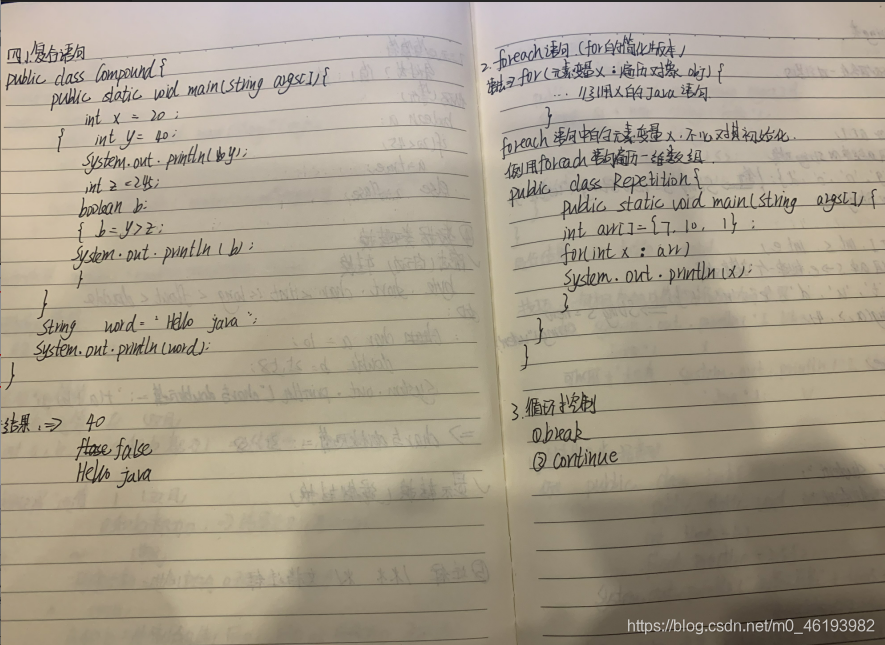 四、复合语句
public class Compound{
public static void main(String args[]){
int x = 20;
{ int y= 40;
System.out.println(y);
int z =245;
boolean b;
{ b = y>z;
System.out.println(b);
}
}
String word= "Hello java";
System.out.println(word);
}
结果:=> 40
false
Hello java
2. foreach语句 (for的简化版本)
for(元素变量x:遍历对象 obj){
... //引用x的Java语句
}
foreach 语句中的元素变量x,不必对其初始化.
例用foreach语句遍历一维数组
public class Repetition{
public static void main(String args[]){
int arr[]={7, 10, 1};
for(int x : arr)
System.out.println(x);
}
}
}
3.循环控制
①break
② continue
https://blog.csdn.net/m0_46193982